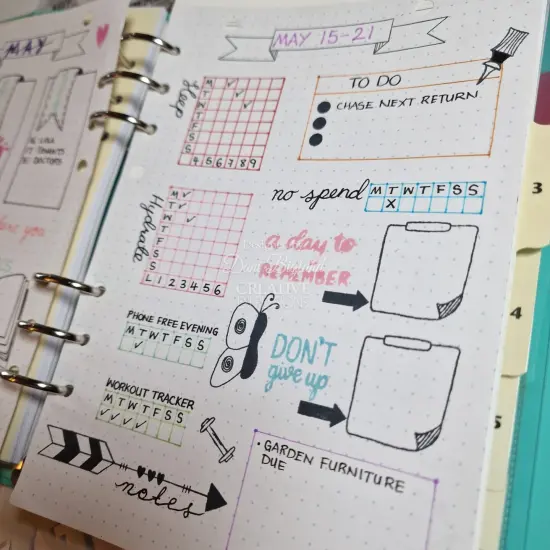 MAY
MAY 15-21
Sleep
M
T
W
T
F
S
S
4 5 6 7 8 9
TO DO
CHASE NEXT RETURN
no spend
M T W T F S S
X
Hydrate
M
T
W
T
F
S
S
L 1 2 3 4 5 6
a day to
REMEMBER
PHONE FREE EVENING
M T W T F S S
DON'T
give up
WORKOUT TRACKER
M T W T F S S
notes
GARDEN FURNITURE
DUE
3
4
5
CREATIVE